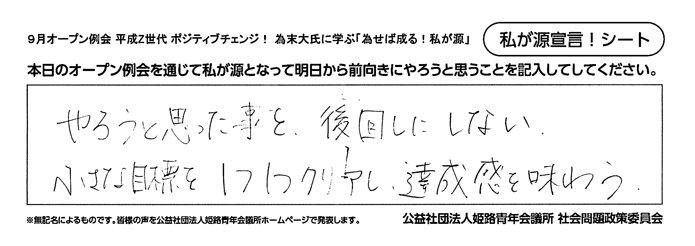 9月オープン例会 平成Z世代 ポジティブチェンジ! 為末大氏に学ぶ「為せば成る!私が源」
私が源宣言!シート
本日のオープン例会を通じて私が源となって明日から前向きにやろうと思うことを記入してしてください。
やろうと思った事を、後回しにしない.
小さな目標を1つ1つクリアし、達成感を味わう.
※無記名によるものです。皆様の声を公益社団法人姫路青年会議所ホームページで発表します。
公益社団法人姫路青年会議所 社会問題政策委員会